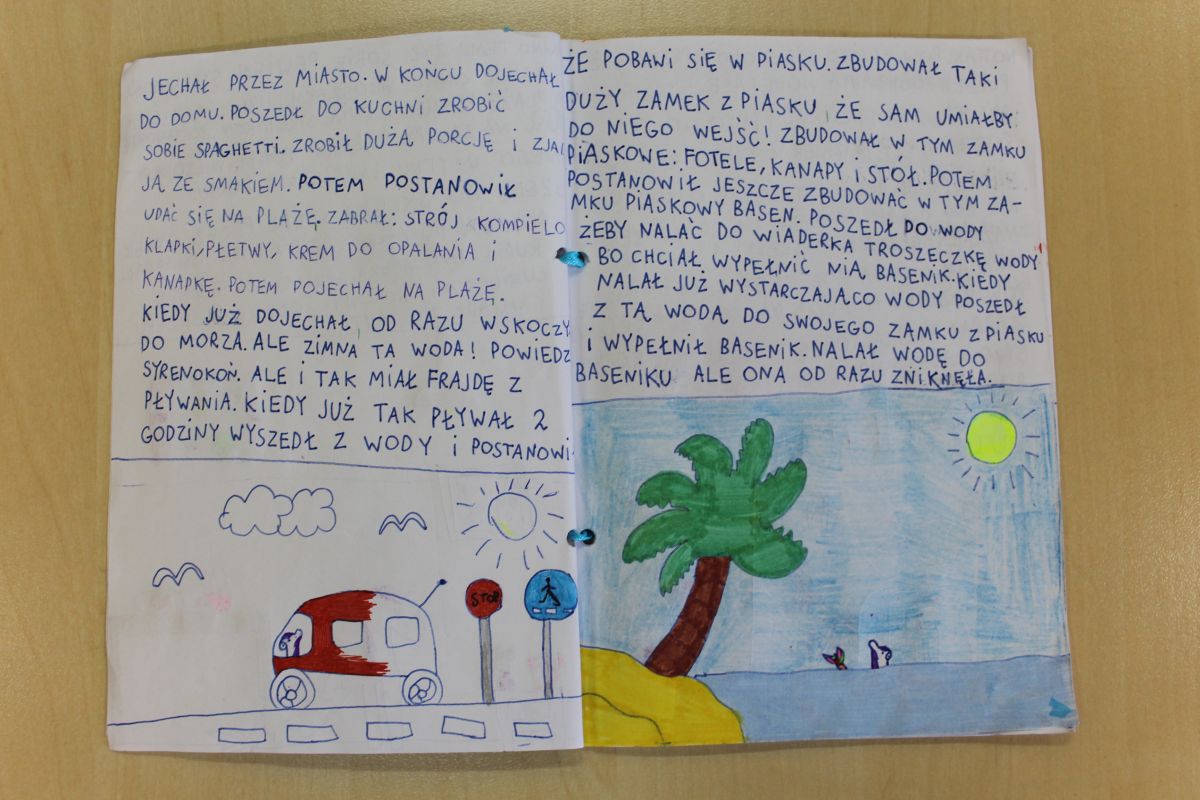 JECHAŁ PRZEZ MIASTO. W KOŃCU DOJECHAŁ
DO DOMU. POSZEDŁ DO KUCHNI ZROBIĆ
SOBIE SPAGHETTI. ZROBIŁ DUŻĄ PORCJĘ I
JĄ ZE SMAKIEM. POTEM POSTANOWIŁ
UDAĆ SIĘ NA PLAŻĘ. ZABRAŁ: STRÓJ KOMPIELO
KLAPKI, PŁETWY, KREM DO OPALANIA I
KANAPKĘ. POTEM POJECHAŁ NA PLAŻĘ.
KIEDY JUŻ DOJECHAŁ, OD RAZU WSKOCZY
DO MORZA. ALE ZIMNA TA WODA! POWIEDZ
SYRENOKOŃ. ALE I TAK MIAŁ FRAJDĘ Z
PŁYWANIA. KIEDY JUŻ TAK PŁYWAŁ 2
GODZINY WYSZEDŁ Z WODY I POSTANOWI
STOP
ŻE POBAWI SIĘ W PIASKU. ZBUDOWAŁ TAKI
DUŻY ZAMEK Z PIASKU, ŻE SAM UMIAŁBY
DO NIEGO WEJŚĆ! ZBUDOWAŁ W TYM ZAMKU
PIASKOWE: FOTELE, KANAPY I STÓŁ. POTEM
POSTANOWIŁ JESZCZE ZBUDOWAĆ W TYM ZA-
MKU PIASKOWY BASEN. POSZEDŁ DO WODY
ŻEBY NALAĆ DO WIADERKA TROSZECZKĘ WODY
BO CHCIAŁ WYPEŁNIĆ NIĄ BASENIK. KIEDY
NALAŁ JUŻ WYSTARCZAJĄCO WODY POSZEDŁ
Z TĄ WODĄ DO SWOJEGO ZAMKU Z PIASKU
I WYPEŁNIŁ BASENIK. NALAŁ WODĘ DO
BASENIKU ALE ONA OD RAZU ZNIKNĘŁA.